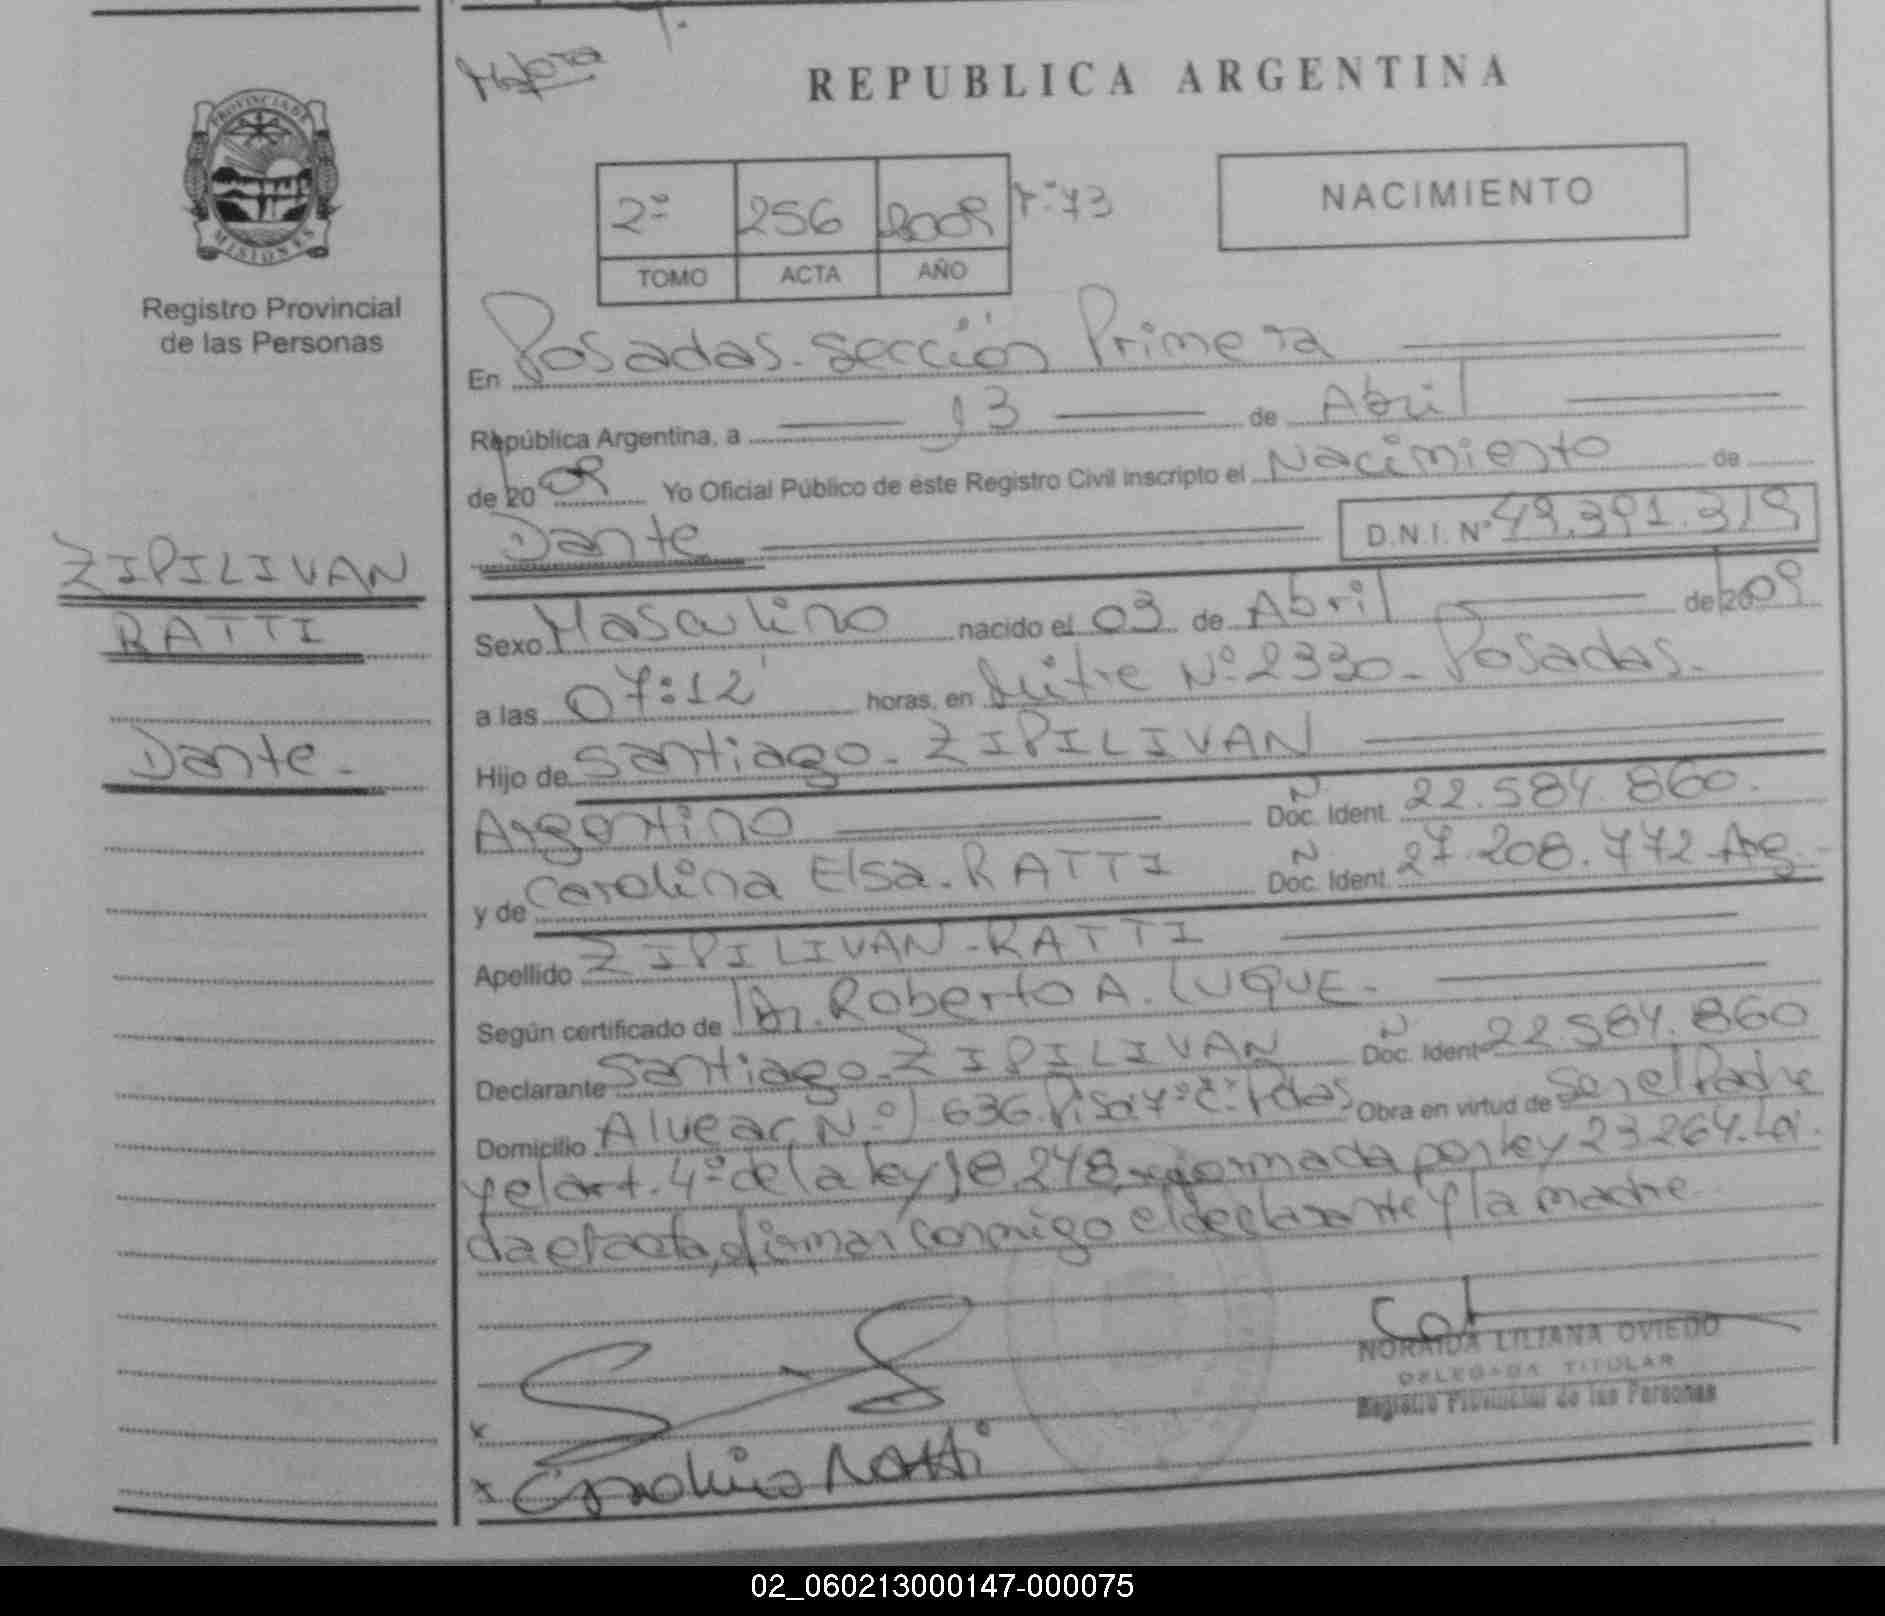 REPUBLICA ARGENTINA
PROVINCIA DE
MISIONES
Registro Provincial
de las Personas
2º 256 2009 Fº 73
TOMO ACTA AÑO
NACIMIENTO
En Posadas. sección Primera
República Argentina, a 13 de Abril
de 2009 Yo Oficial Público de este Registro Civil inscripto el Nacimiento de
Dante D.N.I. Nº 49.391.319
ZIPILIVAN
RATTI
Dante.
Sexo Masculino nacido el 03 de Abril de 2009
a las 07:12' horas, en Mitre Nº 2330. Posadas.
Hijo de Santiago. ZIPILIVAN
Argentino Doc. Ident. N 22.584.860.
y de Carolina Elsa. RATTI Doc. Ident. N 27.208.772 Arg.
Apellido ZIPILIVAN-RATTI
Según certificado de Dr. Roberto A. LUQUE.
Declarante Santiago. ZIPILIVAN Doc. Ident N 22.584.860
Domicilio Alvear, Nº) 636. Piso: 4º "C". Pdas Obra en virtud de Ser el Padre
y el art. 4º de la ley 18.248, reformada por ley 23.264. Leí
da el acta, firman conmigo el declarante y la madre
NORAIDA LILIANA OVIEDO
DELEGADA TITULAR
Registro Provincial de las Personas
x
x Carolina Ratti
02_060213000147-000075